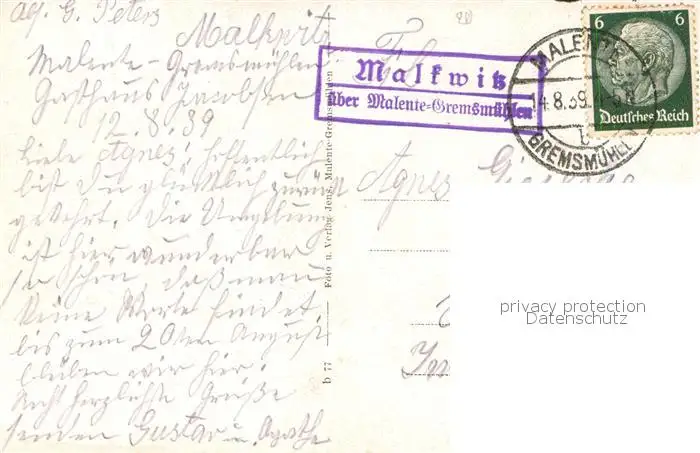 Abs. G. Peters
Malkwitz
Malente-Gremsmühlen
Gasthaus Jacobsen
12.8.39
Liebe Agnes! Hoffentlich
bist Du glücklich zurück
gekehrt. Die Umgebung
ist hier wunderbar
so schön, daß man
keine Worte findet
bis zum 20ten August
bleiben wir hier.
Recht herzlichste Grüße
senden Gustav u. Agathe
Foto u. Verlag Jens, Malente-Gremsmühlen
b 77
Malkwitz
über Malente-Gremsmühlen
MALENTE
14.8.39
b
GREMSMÜHLEN
6 6
Deutsches Reich
Agnes
privacy protection
Datenschutz